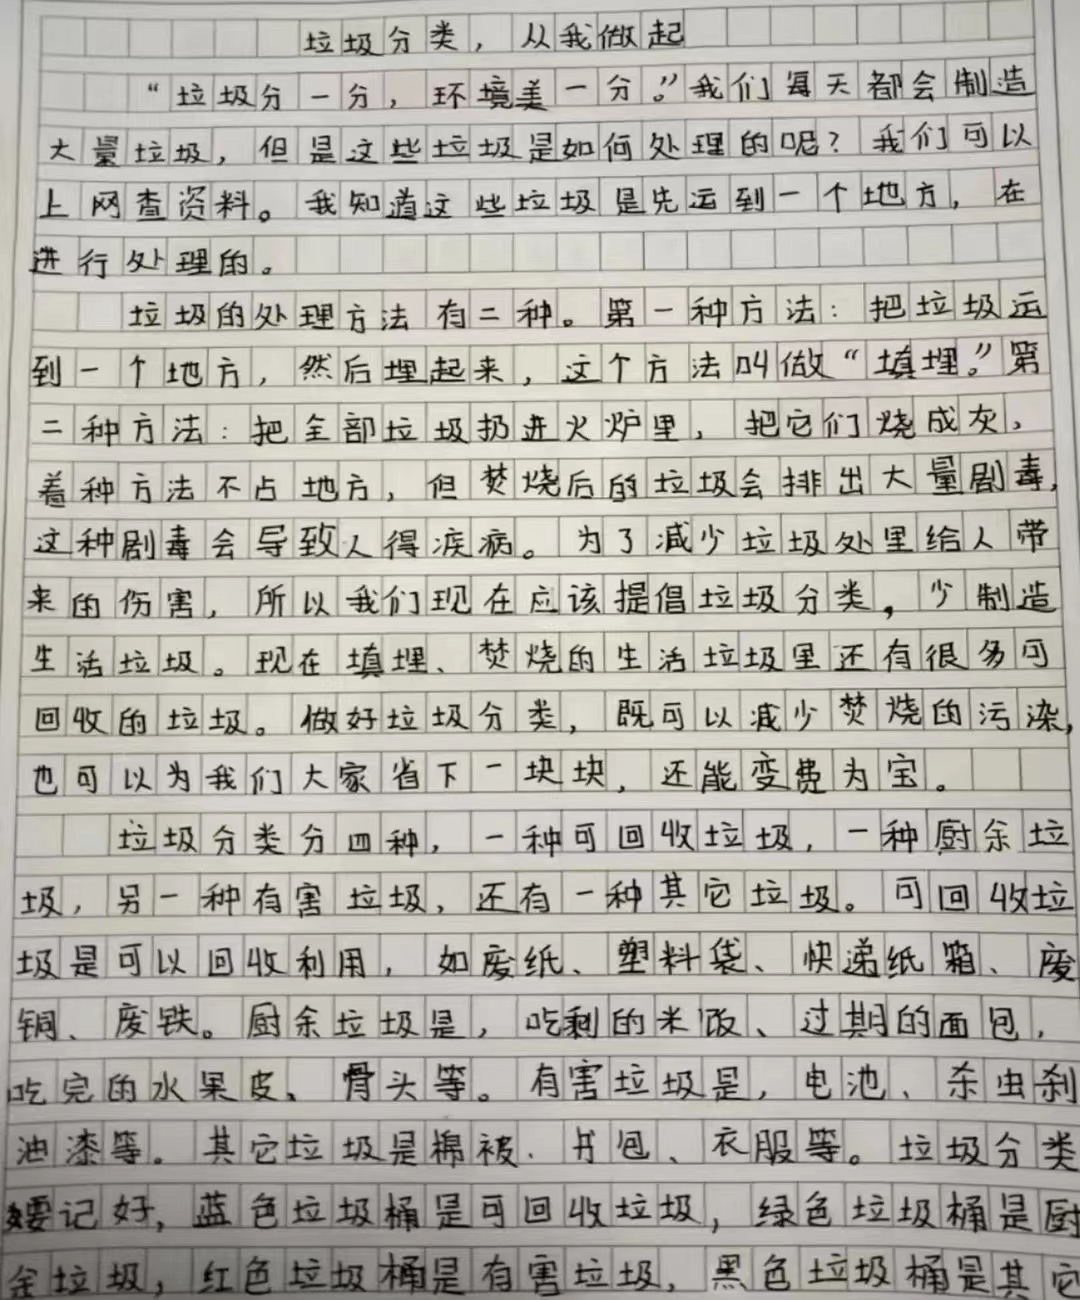 垃圾分类，从我做起
“垃圾分一分，环境美一分。”我们每天都会制造
大量垃圾，但是这些垃圾是如何处理的呢？我们可以
上网查资料。我知道这些垃圾是先运到一个地方，在
进行处理的。
垃圾的处理方法有二种。第一种方法：把垃圾运
到一个地方，然后埋起来，这个方法叫做“填埋。”第
二种方法：把全部垃圾扔进火炉里，把它们烧成灰，
着种方法不占地方，但焚烧后的垃圾会排出大量剧毒，
这种剧毒会导致人得疾病。为了减少垃圾处里给人带
来的伤害，所以我们现在应该提倡垃圾分类，少制造
生活垃圾。现在填埋、焚烧的生活垃圾里还有很多可
回收的垃圾。做好垃圾分类，既可以减少焚烧的污染，
也可以为我们大家省下一块块，还能变费为宝。
垃圾分类分四种，一种可回收垃圾，一种厨余垃
圾，另一种有害垃圾，还有一种其它垃圾。可回收垃
圾是可以回收利用，如废纸、塑料袋、快递纸箱、废
铜、废铁。厨余垃圾是，吃剩的米饭、过期的面包，
吃完的水果皮、骨头等。有害垃圾是，电池、杀虫刹
油漆等。其它垃圾是棉被、书包、衣服等。垃圾分类
要记好，蓝色垃圾桶是可回收垃圾，绿色垃圾桶是厨
余垃圾，红色垃圾桶是有害垃圾，黑色垃圾桶是其它